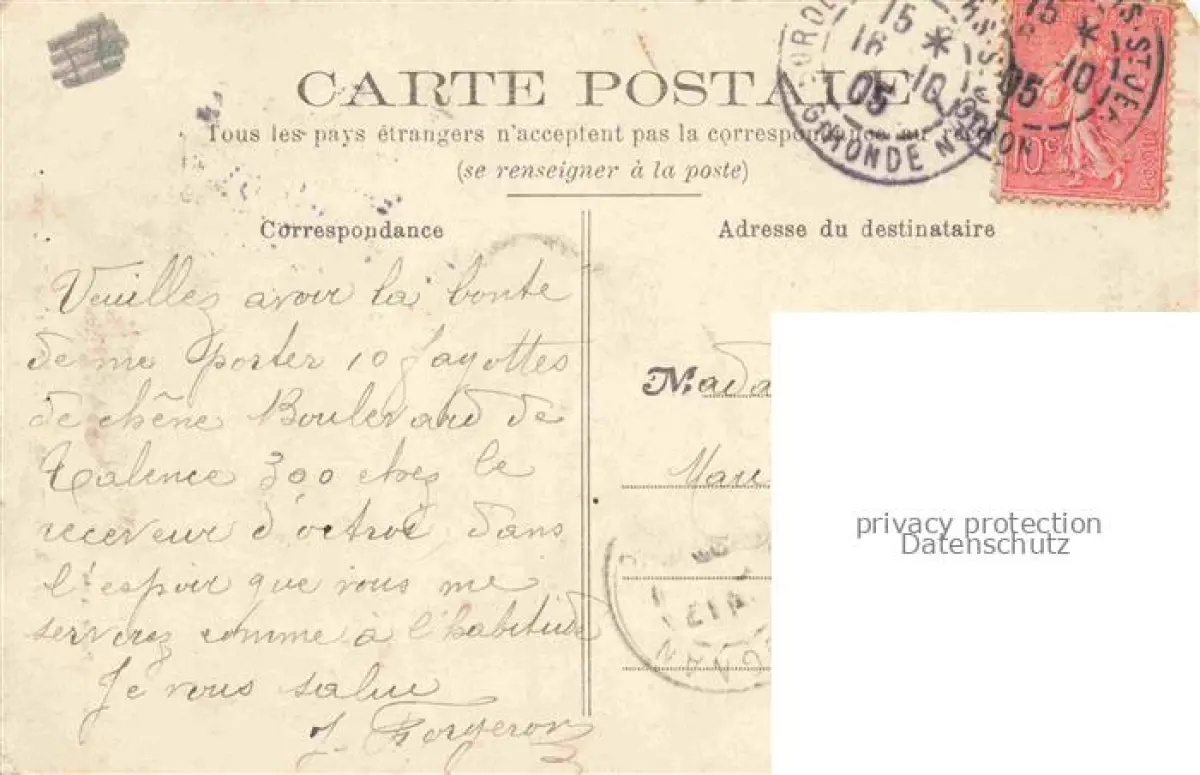 CARTE POSTALE
Tous les pays étrangers n'acceptent pas la correspondance au
(se renseigner à la poste)
Correspondance
Adresse du destinataire
Veuillez avoir la bonte
de me porter 10 fayottes
de chêne Boulevard de
Talence 300 chez le
receveur d'octroi, dans
l'espoir que vous me
servirez comme à l'habitude
Je vous salue
J. Forgeron
Mada
15 *
16 10
05
GIRONDE
15 *
10
05
10c
privacy protection
Datenschutz